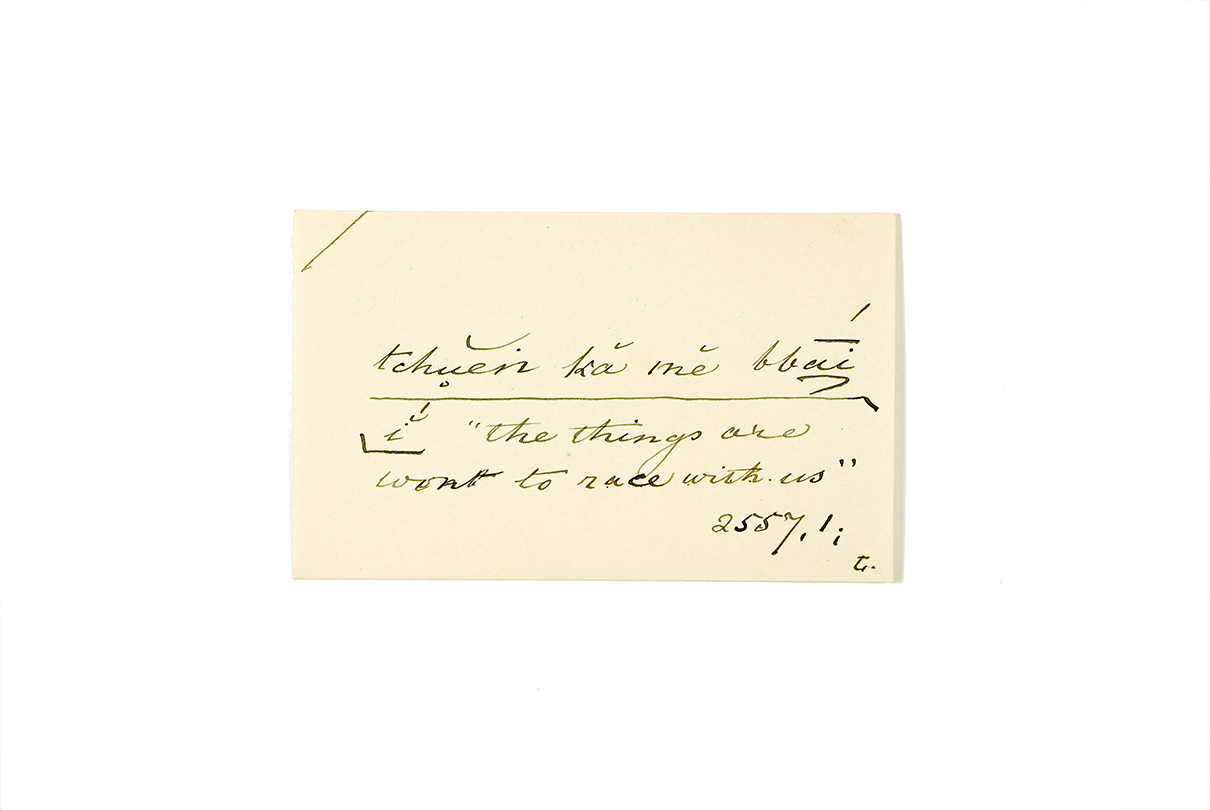 tchụ̆eń kă mĕ bbā́i
ĭ́ "the things are
wont to race with us"
2557, 1;
t.